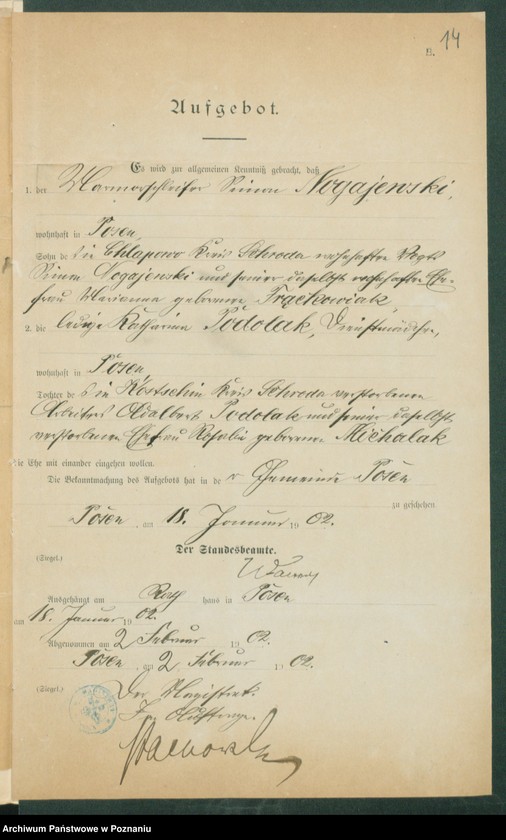 B. 14
Aufgebot.
Es wird zur allgemeinen Kenntniß gebracht, daß
1. der Marmorschleifer Simon Nogajewski,
wohnhaft in Posen,
Sohn des in Chlapowo Kreis Schroda wohnhaften Vogts
Simon Nogajewski und seiner daselbst wohnhaften Ehe-
frau Marianna geborene Trąckowiak,
2. die ledige Katharina Podolak, Dienstmädchen,
wohnhaft in Posen,
Tochter des in Kostschin Kreis Schroda verstorbenen
Arbeiters Adalbert Podolak und seiner daselbst
verstorbenen Ehefrau Rosalie geborene Michalak
die Ehe mit einander eingehen wollen.
Die Bekanntmachung des Aufgebots hat in der Gemeinde Posen
zu geschehen
Posen, am 18. Januar 1902.
Der Standesbeamte.
(Siegel.)
Ausgehängt am Rathhaus in Posen
am 18. Januar 1902.
Abgenommen am 2 Februar 1902.
Posen, am 2 Februar 1902.
(Siegel.) Der Magistrat.
Im Auftrage.
Archiwum Państwowe w Poznaniu